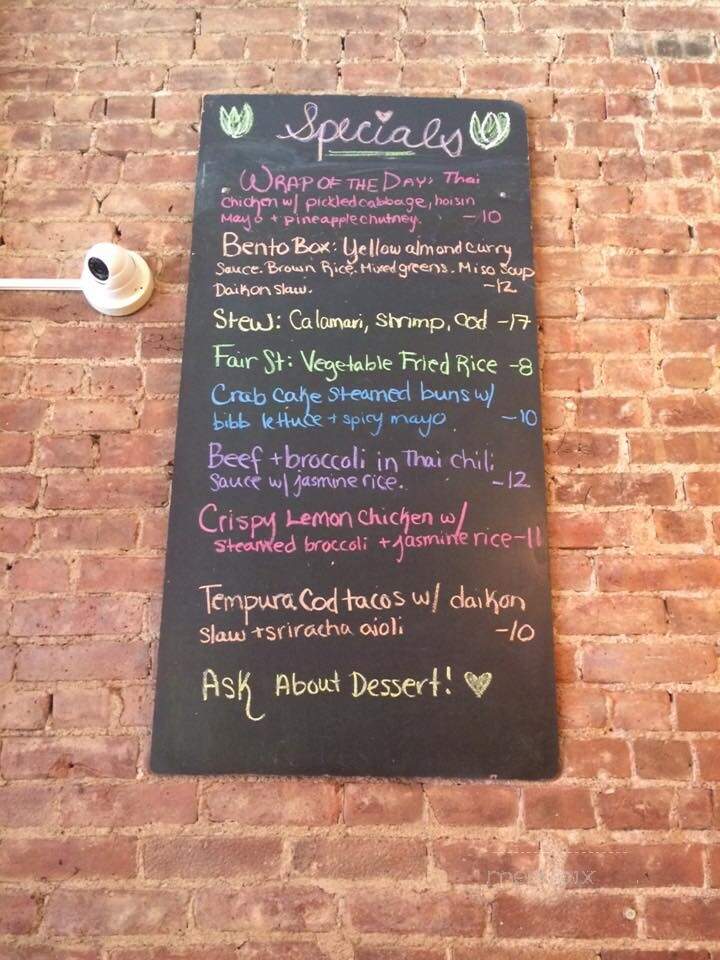 Specials
WRAP OF THE DAY: Thai
chicken w/ pickled cabbage, hoisin
Mayo + pineapple chutney. -10
Bento Box: Yellow almond curry
Sauce. Brown Rice. Mixed greens. Miso Soup
Daikon slaw. -12
Stew: Calamari, shrimp, cod -17
Fair St: Vegetable Fried Rice -8
Crab cake steamed buns w/
bibb lettuce + spicy mayo. -10
Beef + broccoli in Thai chili
sauce w/ jasmine rice. -12
Crispy Lemon Chicken w/
steamed broccoli + jasmine rice -11
Tempura Cod tacos w/ daikon
slaw + sriracha aioli -10
Ask About Dessert!